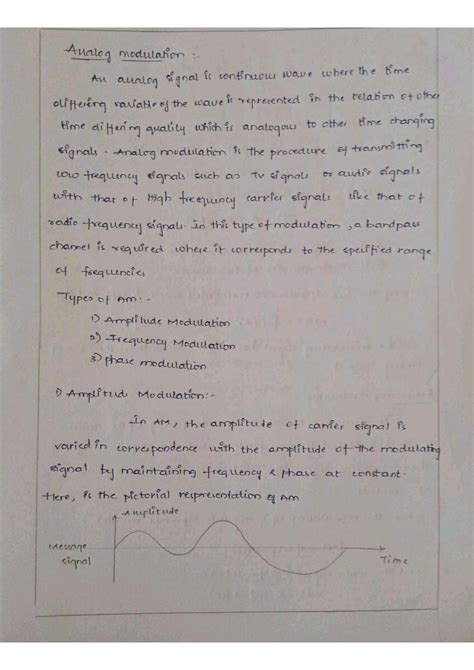 Analog modulation :-
An analog signal is continuous wave where the time
differing variable of the wave is represented in the relation of other
time differing quality which is analogous to other time changing
signals. Analog modulation is the procedure of transmitting
low frequency signals such as tv signals or audio signals
with that of High frequency carrier signals like that of
radio frequency signals. In this type of modulation, a bandpass
channel is required where it corresponds to the specified range
of frequencies
Types of AM:-
1) Amplitude Modulation
2) Frequency Modulation
3) phase modulation
1) Amplitude Modulation:-
In AM, the amplitude of carrier signal is
varied in correspondence with the amplitude of the modulating
signal by maintaining frequency & phase at constant.
Here, is the pictorial representation of AM
Amplitude
Message
signal
Time